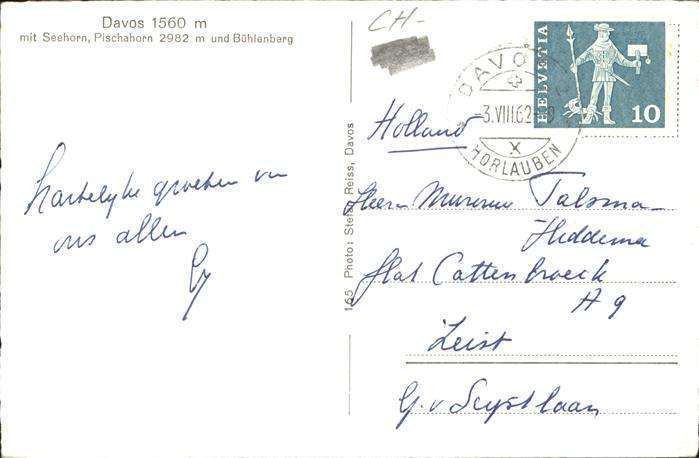 Davos 1560 m
mit Seehorn, Pischahorn 2982 m und Bühlenberg
CH-
HELVETIA
10
DAVOS
-3.VIII.62
HORLAUBEN
Holland
Hartelyke groeten van
ons allen
Heer Mevrouw Talsma-
Hiddema
flat Cattenbroeck
A 9
Zeist
G. v Seystlaan
155 Photo: Stefan Reiss, Davos